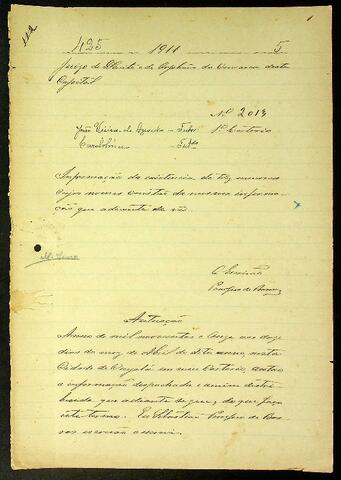 112
1
425 1911 5
Juizo de Direito e de Orphãos da Comarca desta
Capital
Nº 2013
João Vieira de Azevedo - Tutor 1º Cartorio
Carolina - Tutda
Informação da existencia de tres menores
cujos nomes constão da mesma informa-
ção que adiante se vê.
O Escrivão
Autuação
Anno de mil novecentos e onze aos doze
dias do mez de Abril do dito anno, nesta
Cidade de Cuyabá em meu Cartorio, autuo
a informação despachada e assim distri-
buida que adiante segue; do que faço
este termo. Eu Sebastião Pompeo de Bar-
ros escrivão escrevi.